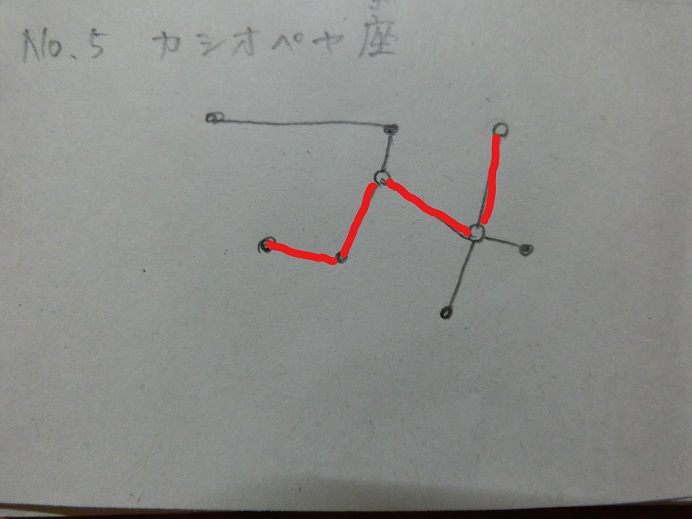 No.5 カシオペヤ座